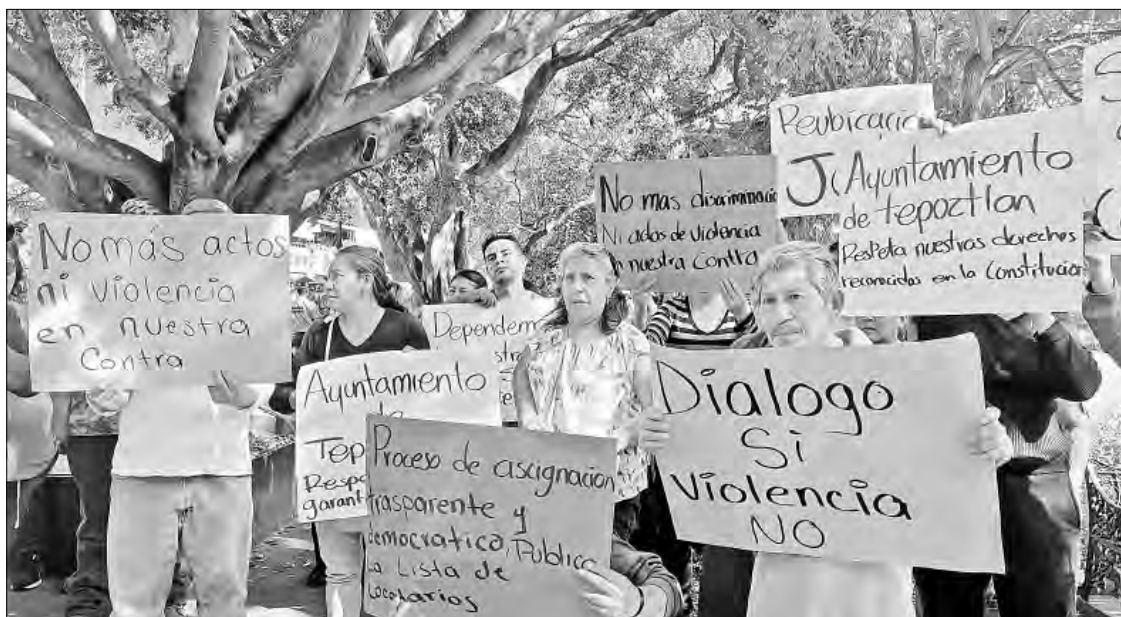 No más actos
ni violencia
en nuestra
Contra
Ayuntamiento
de
Tep
Respe
garant
Dependem
Proceso de ascignación
trasparente y
democratico, Publica
La Lista de
Locatarios
No mas discriminació
Ni actos de violencia
n nuestra Contra
Reubicació
J
Ayuntamiento
de tepoztlan
Respeta nuestros derechos
reconocidos en la Constitución
Dialogo
Si
Violencia
NO
S